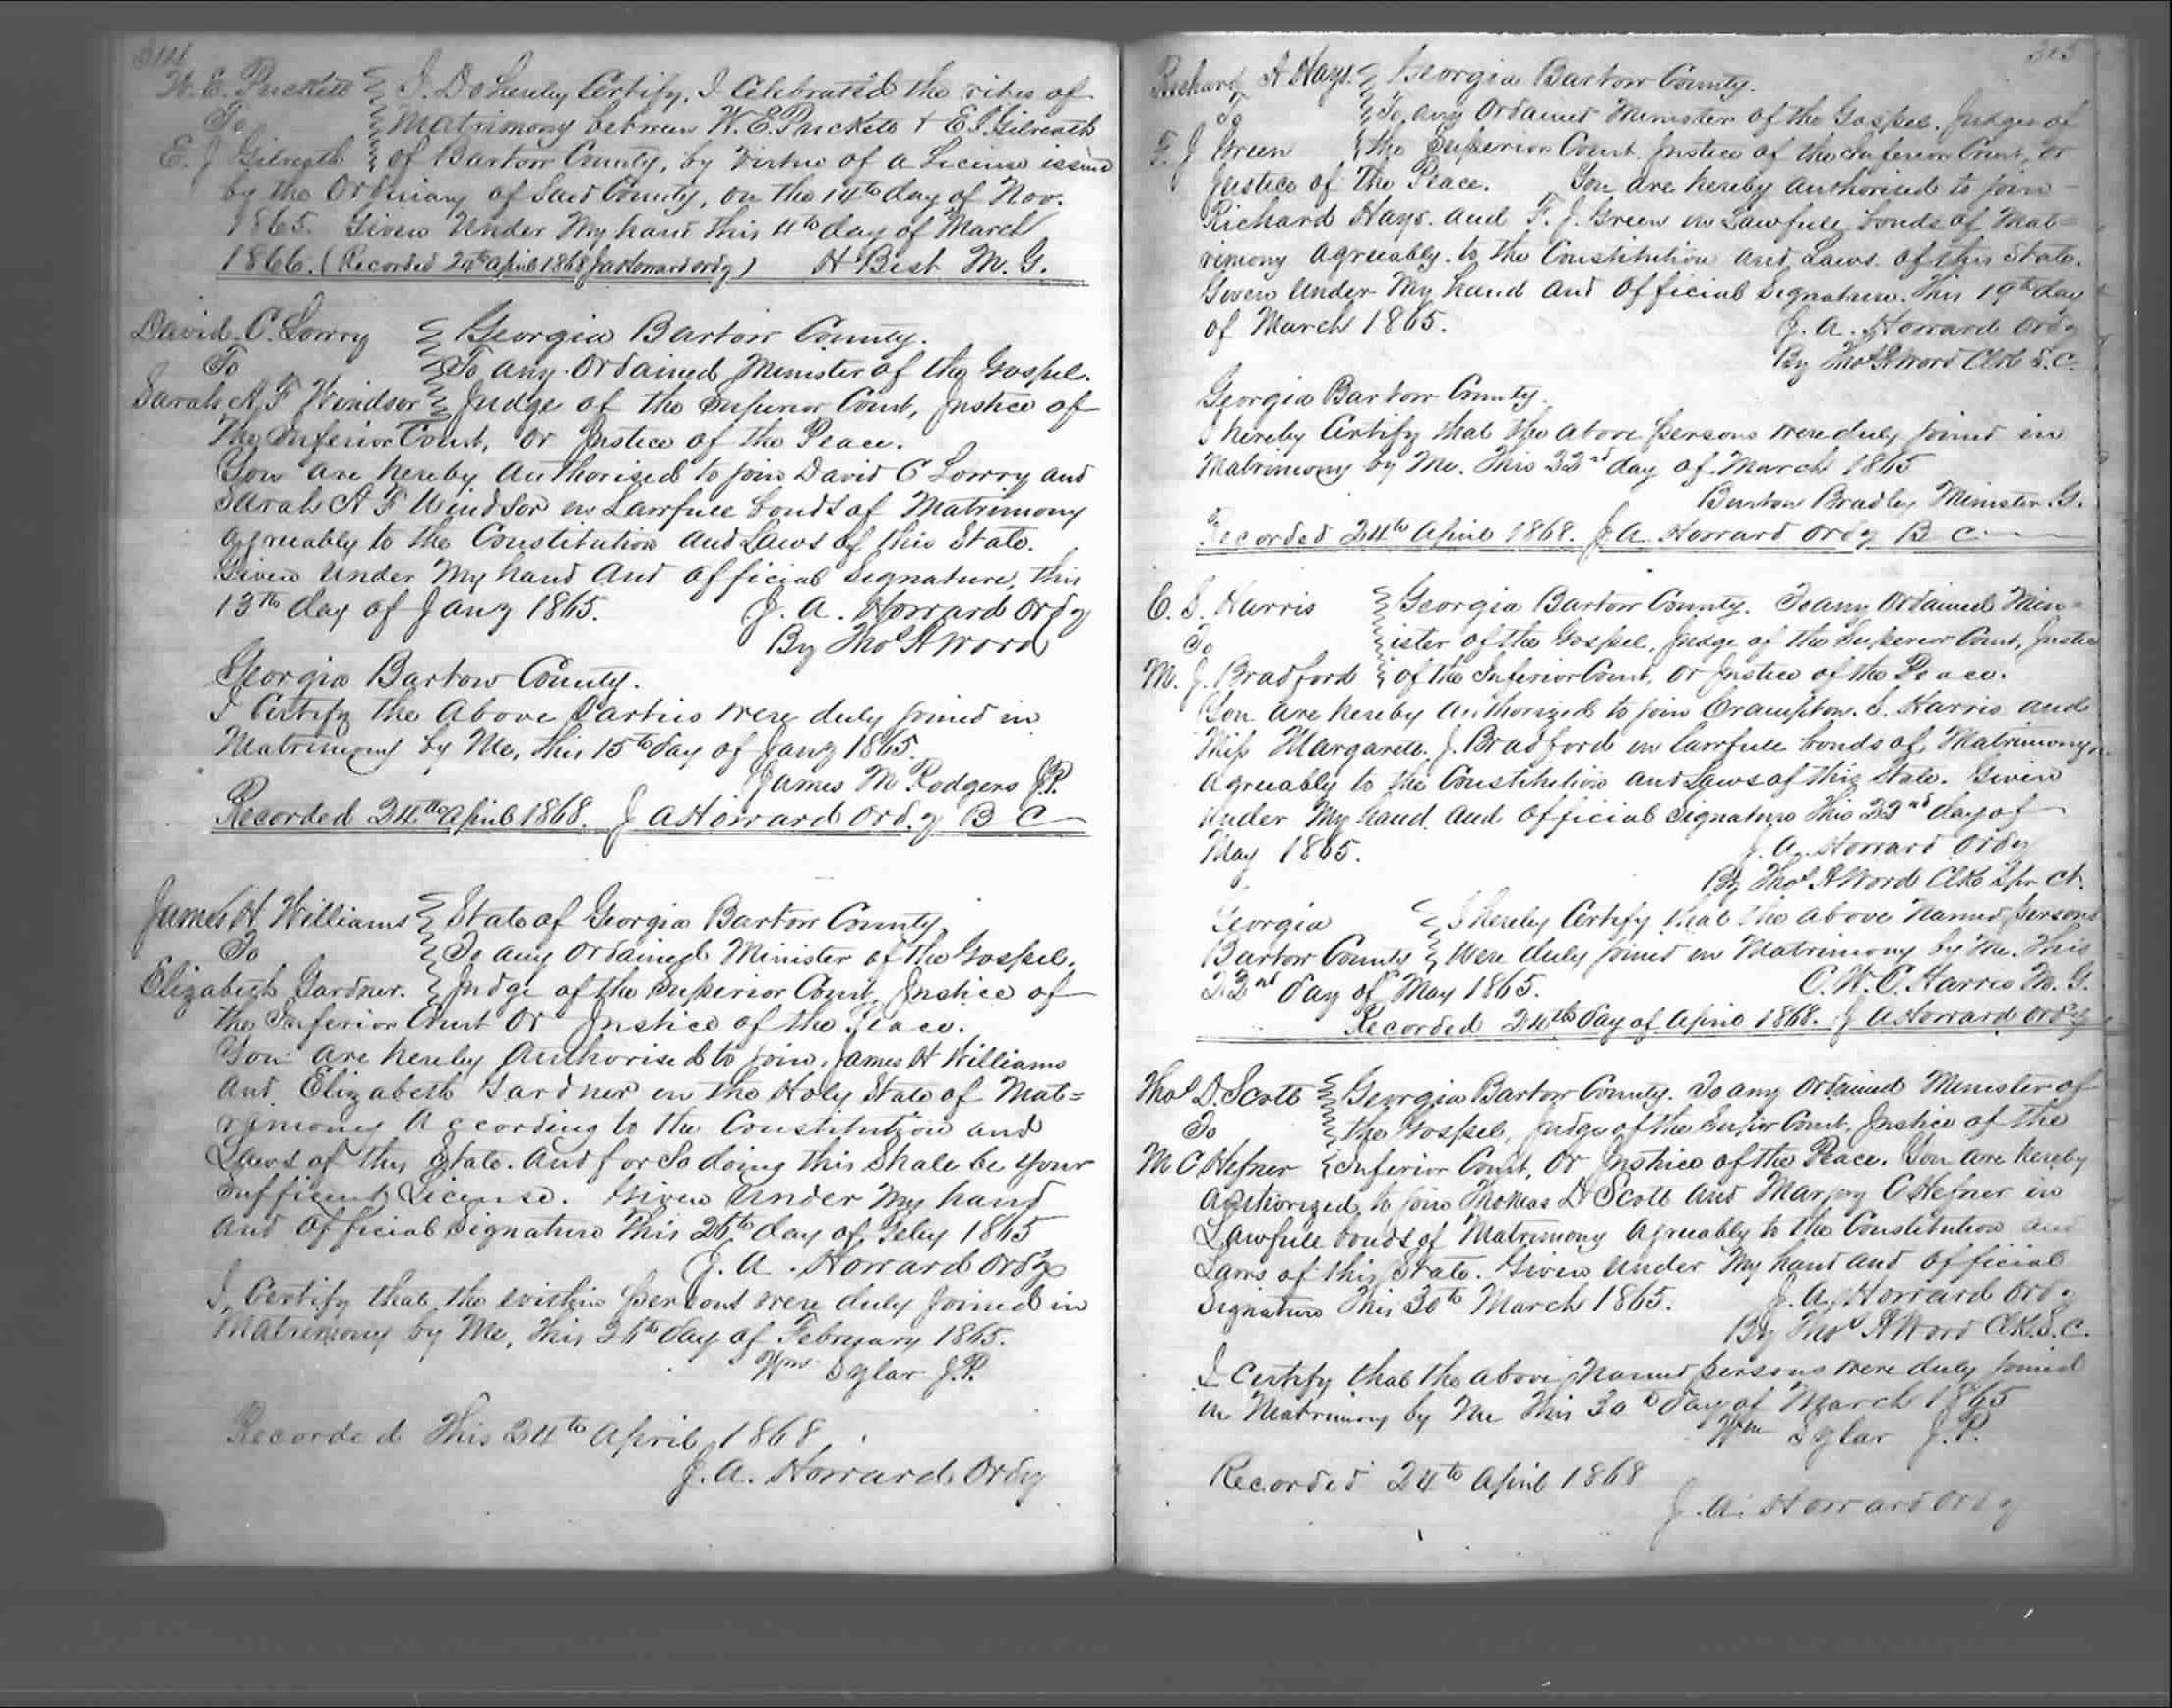 314
W. E. Puckett I. Do hereby Certify, I Celebrated the rites of
To Matrimony between W. E. Puckett & E. J. Gilreath
E. J Gilreath of Bartow County, by Virtue of a License issued
by the Ordinary of Said County, on the 14th day of Nov.
1865. Given Under My hand this 4th day of March
1866. (Recorded 24th April 1868 J A Howard ordy) H Best M. G.
David. C. Lowry Georgia Bartow County.
To To any Ordained Minister of the Gospel.
Sarah A. F Windsor Judge of the Superior Court, Justice of
The Inferior Court, Or Justice of the Peace.
You are hereby Authorised to join David C Lowry and
Sarah A F Windsor in Lawfull bonds of Matrimony
agreeably to the Constitution and Laws of this State.
Given Under My hand And Official Signature, this
13th day of Jany 1865. J. A. Howard Ordy
By Thos A Word
Georgia Bartow County.
I Certify the Above Parties were duly joined in
Matrimony by Me, this 15th day of Jany 1865.
James M Rodgers J.P.
Recorded 24th April 1868. J A Howard Ord.y B C
James H Williams State of Georgia Bartow County
To To any Ordained Minister of the Gospel.
Elizabeth Gardner. Judge of the Superior Court, Justice of
the Inferior Court Or Justice of the Peace.
You are hereby Authorised to join, James H Williams
And Elizabeth Gardner in the Holy State of Mat=
rimony According to the Constitution and
Laws of this State. And for So doing this Shall be your
Sufficient License. Given Under My hand
and Official Signature This 26th day of Feby 1865
J. A. Howard Ordy
I Certify that the within persons were duly Joined in
Matrimony by Me, this 26th day of February 1865.
Wm Sylar J.P.
Recorded This 24th April 1868.
J. A. Howard Ordy
315
Richard A Hays. Georgia Bartow County.
To To any Ordained Minister of the Gospel. Judge of
F. J Green the Superior Court. Justice of the Inferior Court, or
Justice of the Peace. You are hereby authorised to join
Richard Hays. and F. J. Green in Lawfull bonds of Mat=
rimony agreeably. to the Constitution and Laws. of this State.
Given Under My hand And Official Signature. This 19th day
of March 1865. J. A. Howard Ordy
By Thos A Word Clk S. C.
Georgia Bartow County.
I hereby Certify that the above persons were duly joined in
Matrimony by Me. This 22nd day of March 1865
Burton Bradley Minister G.
Recorded 24th April 1868. J A. Howard Ordy B C
C. S. Harris Georgia Bartow County. To any Ordained Min=
To ister of the Gospel, Judge of the Superior Court, Justice
M. J. Bradford of the Inferior Court, Or Justice of the Peace.
You are hereby authorized to join Crampton. S. Harris and
Miss Margarett. J. Bradford in lawfull bonds of Matrimony
agreeably to the Constitution and Laws of this State. Given
Under My hand and Official Signature This 22nd day of
May 1865. J. A. Howard Ordy
By Thos A Word Clk Spr Ct.
Georgia I hereby Certify that the above Named persons
Bartow County Were duly joined in Matrimony by Me. This
22nd day of May 1865. C. W. C. Harris M. G.
Recorded 24th day of April 1868. J A Howard Ordy
Thos D. Scott Georgia Bartow County. To any Ordained Minister of
To the Gospel, Judge of the Superior Court, Justice of the
M C Hefner Inferior Court, Or Justice of the Peace. You are hereby
authorized to join Thomas D Scott and C Hefner in
Lawfull bonds of Matrimony Agreeably to the Constitution and
Laws of this State. Given Under My hand and Official
Signature This 30th March 1865. J. A. Howard Ordy
By Thos A Word Clk. S. C.
I Certify that the above Named persons were duly joined
in Matrimony by Me This 30th day of March 1865
Wm Sylar J. P.
Recorded 24th April 1868
J. A. Howard Ordy